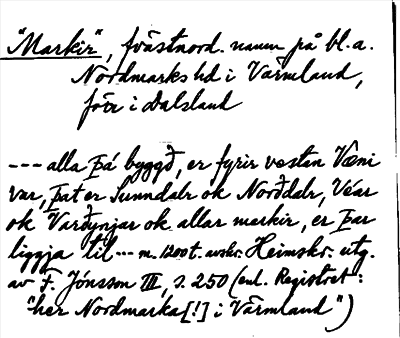 "Markir", fvästnord. namn på bl.a.
Nordmarks hd i Värmland,
förr i Dalsland
--- alla þá byggð, er fyrir vestan Væni
var, þat er Sunndalr ok Norðdalr, Véar
ok Varðynjar ok allar markir, er þar
liggja til --- m. 1200 t. avskr. Heimskr. utg.
av F. Jónsson III, s. 250 (enl. Registret:
"her Nordmarka [!] i Värmland")